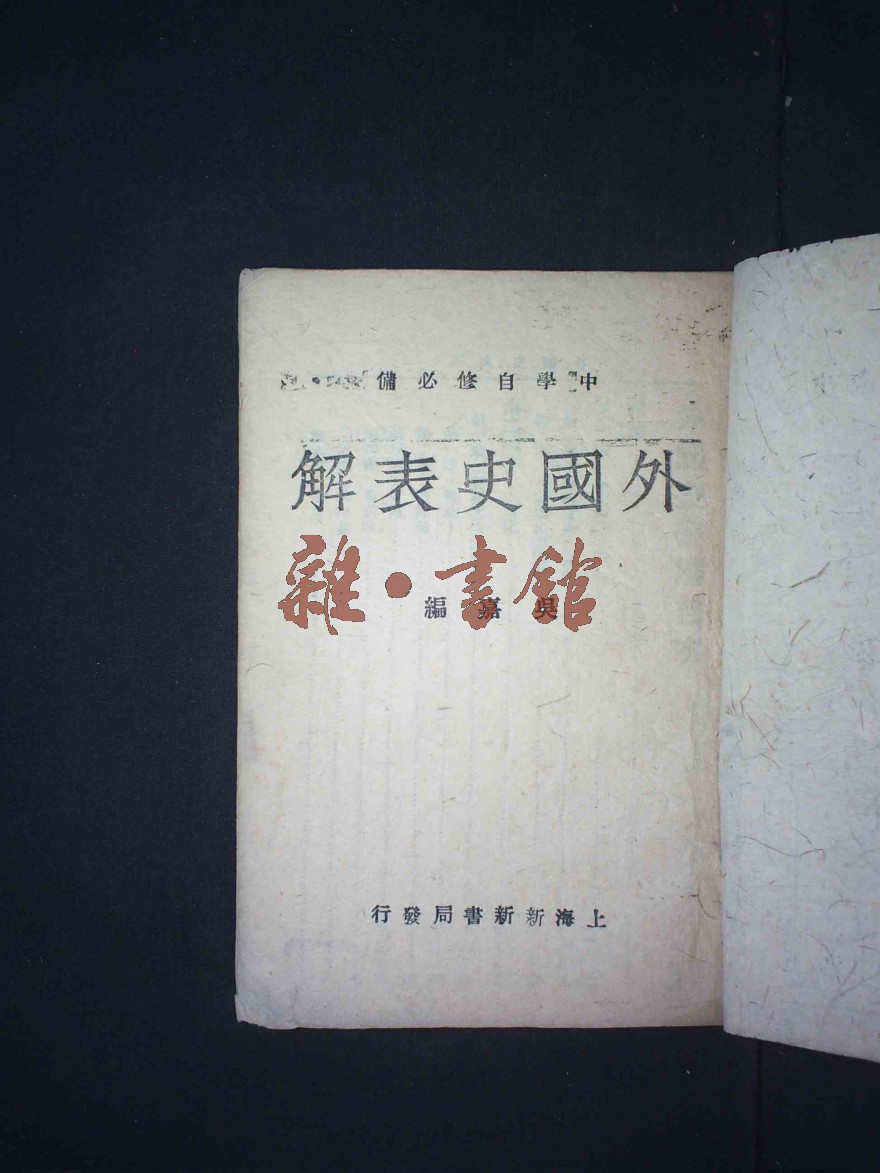 中學自修必備
外國史表解
吳嘉編
雜·書館
上海新新書局發行